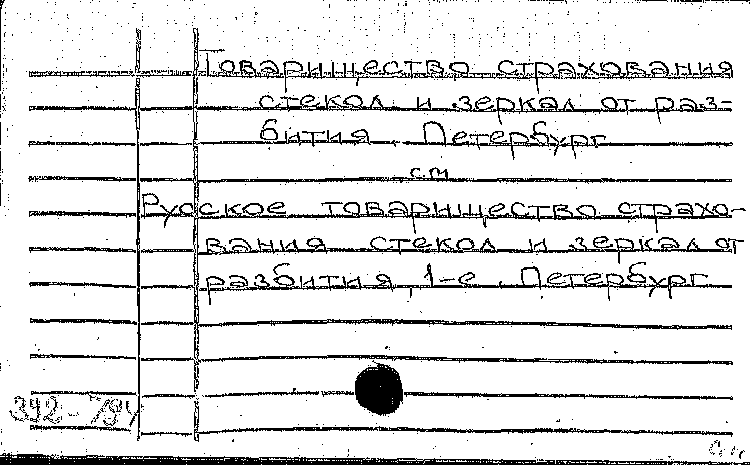 Товарищество страхования
стекол и зеркал от раз-
бития, Петербург
см
Русское товарищество страхо-
вания стекол и зеркал от
разбития, 1-е. Петербург
392-